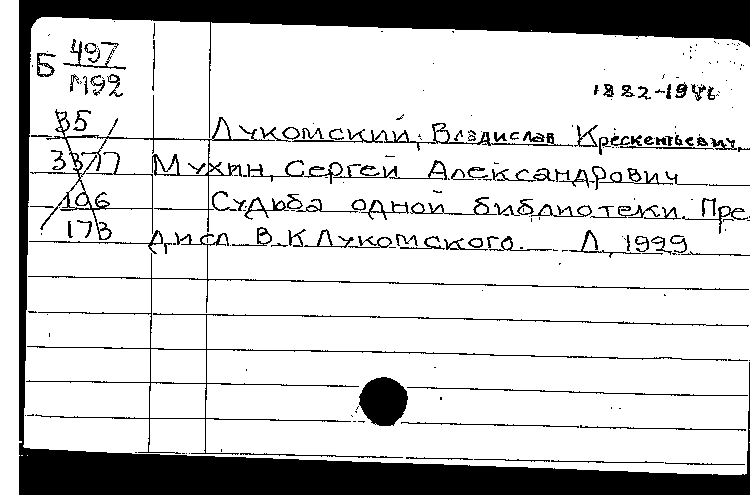 Б 497
М92
1882-1946
35
Лукомский, Владислав Крескентьевич,
3377 Мухин, Сергей Александрович
106 Судьба одной библиотеки. Пре
173 дисл В.К Лукомского. Л, 1999